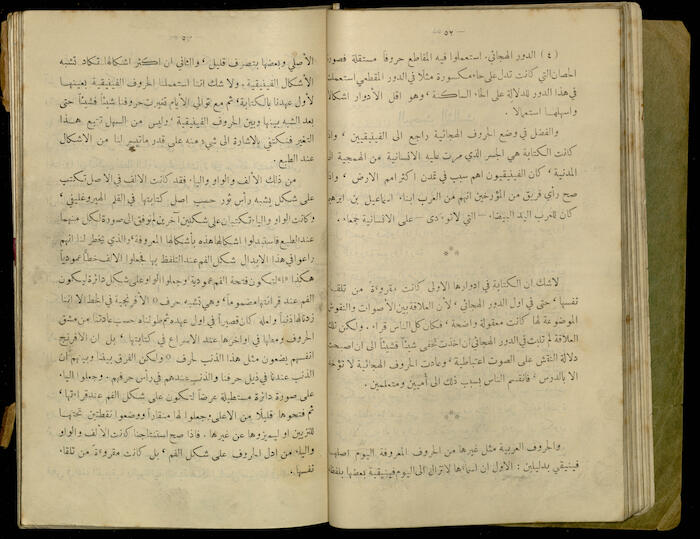 — ٥٦ —
( ٤ ) الدور الهجائي. استعملوا فيه المقاطع حروفاً مستقلة فصور
الحصان التي كانت تدل على حاء مكسورة مثلاً في الدور المقطعي استعملت
في هذا الدور للدلالة على الحاء الساكنة، وهو اقل الأدوار اشكالا
واسهلها استعمالا.
والفضل في وضع الحروف الهجائية راجع الى الفينيقيين ، واذا
كانت الكتابة هي الجسر الذي مرت عليه الانسانية من الهمجية الى
المدنية ، كان الفينيقيون اهم سبب في تمدن اكثر امم الارض ، واذا
صح رأي فريق من المؤرخين انهم من العرب ابناء اسماعيل بن ابراهيم
كان للعرب اليد البيضاء — التي لا تؤدى — على الانسانية جمعاء.
لا شك ان الكتابة في ادوارها الاولى كانت مقروءة من تلقاء
نفسها ، حتى في اول الدور الهجائي ، لأن العلاقة بين الأصوات والنقوش
الموضوعة لها كانت معقولة واضحة ، فكان كل الناس قراء . ولكن تلك
العلاقة لم تلبث في الدور الهجائي ان اخذت تخفى شيئاً فشيئاً الى ان اصبحت
دلالة النقش على الصوت اعتباطية ، وعادت الحروف الهجائية لا تؤخذ
الا بالدرس ، فانقسم الناس بسبب ذلك الى أميين ومتعلمين .
والحروف العربية مثل غيرها من الحروف المعروفة اليوم اصلها
فينيقي بدليلين : الاول ان اسماءها لا تزال الى اليوم فينيقية بعضها بلفظه
— ٥٧ —
الأصلي وبعضها بتصرف قليل ، والثاني ان اكثر اشكالها تكاد تشبه
الأشكال الفينيقية . ولا شك اننا استعملنا الحروف الفينيقية بعينها
لأول عهدنا بالكتابة ، ثم مع توالي الأيام تغيرت حروفنا شيئاً فشيئاً حتى
بعد الشبه بينها وبين الحروف الفينيقية ، وليس من السهل تتبع هذا
التغير فنكتفي بالاشارة الى شيء منه على قدر ما تيسر لنا من الاشكال
عند الطبع .
من ذلك الألف والواو والياء . فقد كانت الالف في الاصل تكتب
على شكل يشبه رأس ثور حسب اصل كتابتها في القلم الهيروغليفي ،
وكانت الواو والياء تكتبان على شكلين آخرين لم نوفق الى صورة لكل منهما
عند الطبع فاستبدلوا اشكالها هذه بأشكالها المعروفة ، والذي يخطر لنا انهم
راعوا في هذا الابدال شكل الفم عند التلفظ بها فجعلوا الالف خطاً عمودياً
هكذا «ا» لتكون فتحة الفم عمودية ، وجعلوا الواو على شكل دائرة ليكون
الفم عند قراءتها مضموماً ، وهي تشبه حرف o الافرنجية في الخط الا اننا
زدنا لها ذنباً ، ولعله كان قصيراً في اول عهده ثم طولناه حسب عادتنا من مشق
الحروف ومطها في اواخرها عند الاسراع في كتابتها ، بل ان الافرنج
انفسهم يضعون مثل هذا الذنب لحرف o ولكن الفرق بيننا وبينهم ان
الذنب عندنا في ذيل حرفنا والذنب عندهم في رأس حرفهم . وجعلوا الياء
على صورة دائرة مستطيلة عرضاً لتكون على شكل الفم عند قراءتها ،
ثم فتحوها قليلاً من الاعلى وجعلوا لها منقاراً ووضعوا نقطتين تحتها
للتزيين او ليميزوها عن غيرها . فاذا صح استنتاجنا كانت الألف والواو
والياء من ادل الحروف على شكل الفم ، بل كانت مقروءة من تلقاء
نفسها .